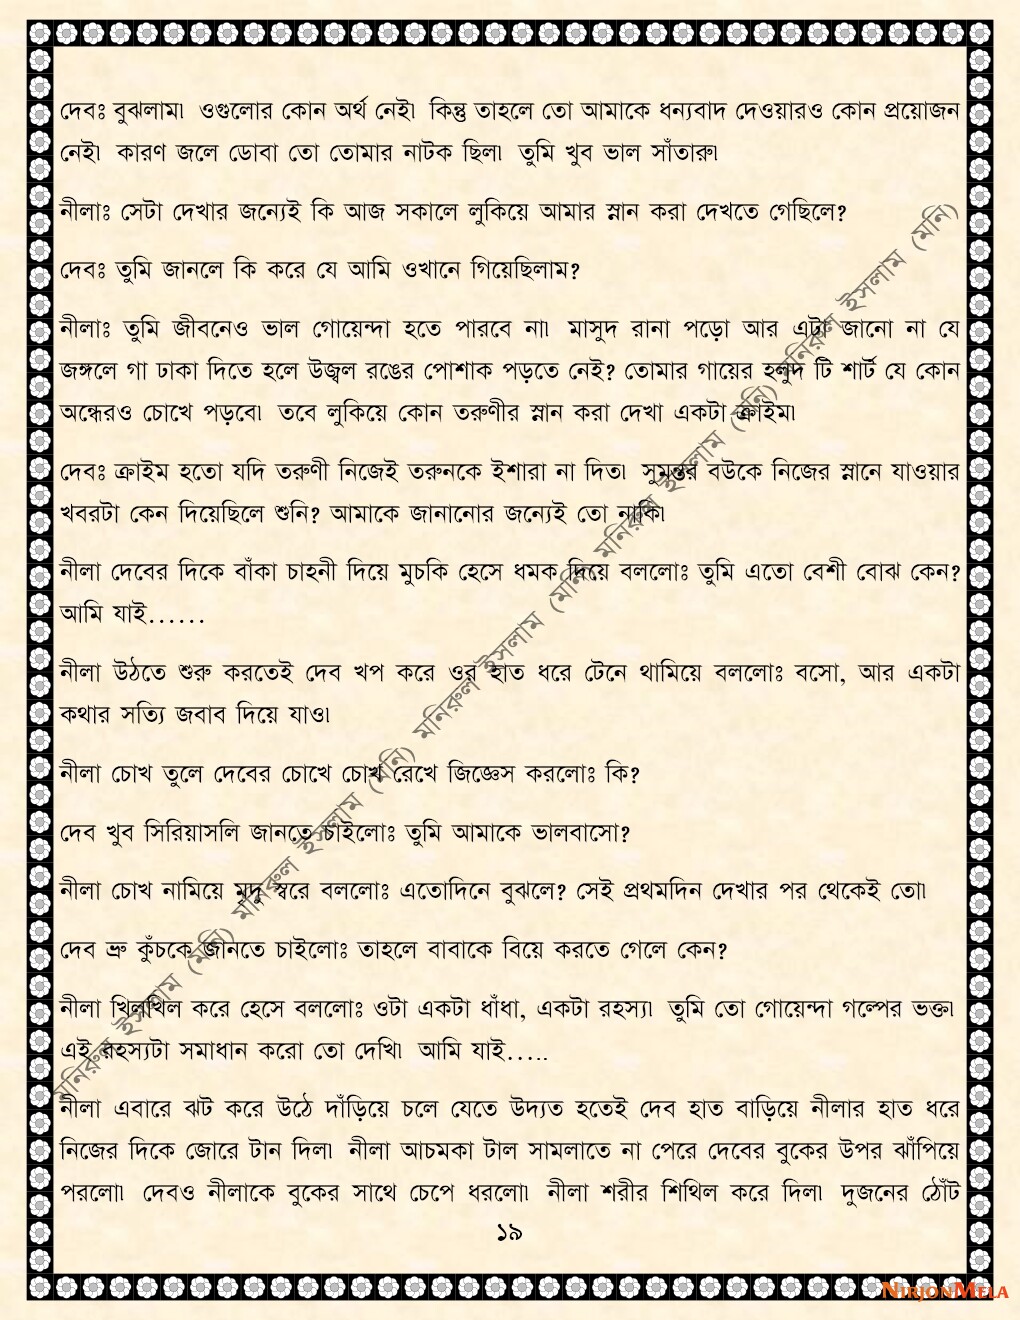 দেবঃ বুঝলাম৷ ওগুলোর কোন অর্থ নেই৷ কিন্তু তাহলে তো আমাকে ধন্যবাদ দেওয়ারও কোন প্রয়োজন
নেই৷ কারণ জলে ডোবা তো তোমার নাটক ছিল৷ তুমি খুব ভাল সাঁতারু৷
নীলাঃ সেটা দেখার জন্যেই কি আজ সকালে লুকিয়ে আমার স্নান করা দেখতে গেছিলে?
দেবঃ তুমি জানলে কি করে যে আমি ওখানে গিয়েছিলাম?
নীলাঃ তুমি জীবনেও ভাল গোয়েন্দা হতে পারবে না৷ মাসুদ রানা পড়ো আর এটা জানো না যে
জঙ্গলে গা ঢাকা দিতে হলে উজ্বল রঙের পোশাক পড়তে নেই? তোমার গায়ের হলুদ টি শার্ট যে কোন
অন্ধেরও চোখে পড়বে৷ তবে লুকিয়ে কোন তরুণীর স্নান করা দেখা একটা ক্রাইম৷
দেবঃ ক্রাইম হতো যদি তরুণী নিজেই তরুনকে ইশারা না দিত৷ সুমন্তর বউকে নিজের স্নানে যাওয়ার
খবরটা কেন দিয়েছিলে শুনি? আমাকে জানানোর জন্যেই তো নাকি৷
নীলা দেবের দিকে বাঁকা চাহনী দিয়ে মুচকি হেসে ধমক দিয়ে বললোঃ তুমি এতো বেশী বোঝ কেন?
আমি যাই......
নীলা উঠতে শুরু করতেই দেব খপ করে ওর হাত ধরে টেনে থামিয়ে বললোঃ বসো, আর একটা
কথার সত্যি জবাব দিয়ে যাও৷
নীলা চোখ তুলে দেবের চোখে চোখ রেখে জিজ্ঞেস করলোঃ কি?
দেব খুব সিরিয়াসলি জানতে চাইলোঃ তুমি আমাকে ভালবাসো?
নীলা চোখ নামিয়ে মৃদু স্বরে বললোঃ এতোদিনে বুঝলে? সেই প্রথমদিন দেখার পর থেকেই তো৷
দেব ভ্রু কুঁচকে জানতে চাইলোঃ তাহলে বাবাকে বিয়ে করতে গেলে কেন?
নীলা খিলখিল করে হেসে বললোঃ ওটা একটা ধাঁধা, একটা রহস্য৷ তুমি তো গোয়েন্দা গল্পের ভক্ত৷
এই রহস্যটা সমাধান করো তো দেখি৷ আমি যাই.....
নীলা এবারে ঝট করে উঠে দাঁড়িয়ে চলে যেতে উদ্যত হতেই দেব হাত বাড়িয়ে নীলার হাত ধরে
নিজের দিকে জোরে টান দিল৷ নীলা আচমকা টাল সামলাতে না পেরে দেবের বুকের উপর ঝাঁপিয়ে
পরলো৷ দেবও নীলাকে বুকের সাথে চেপে ধরলো৷ নীলা শরীর শিথিল করে দিল৷ দুজনের ঠোঁট
১৯
মনিরুল ইসলাম (মনি) মনিরুল ইসলাম (মনি) মনিরুল ইসলাম (মনি) মনিরুল ইসলাম (মনি) মনিরুল ইসলাম (মনি)
NIRJONMELA